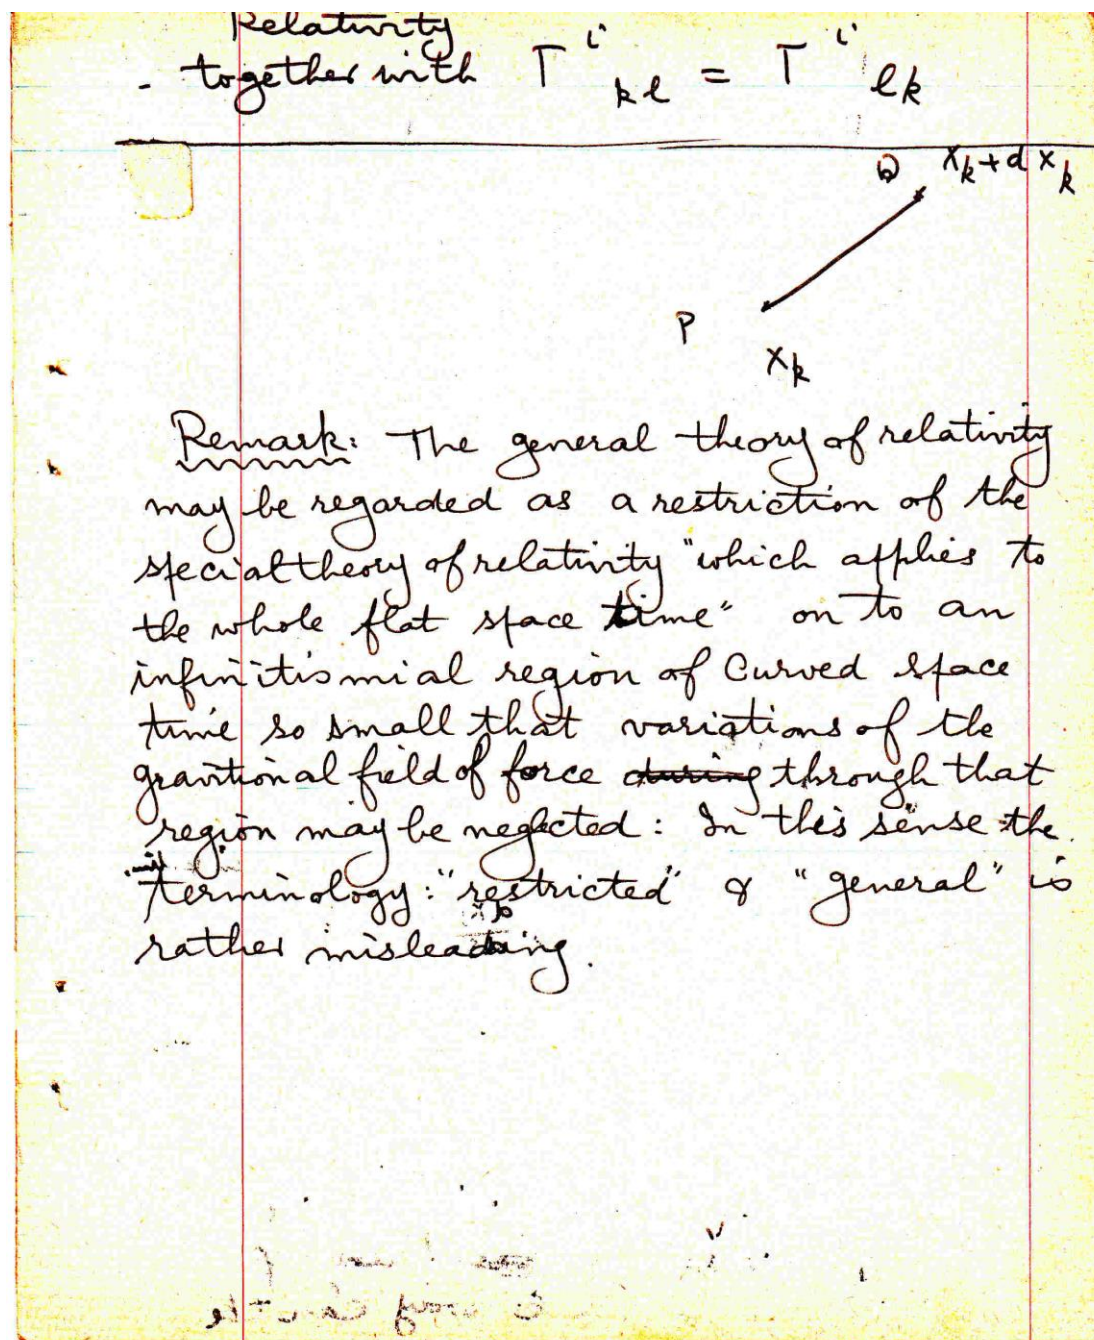 Relativity
- together with Γ^i_kl = Γ^i_lk
Q x_k + d x_k
P
x_k
Remark: The general theory of relativity
may be regarded as a restriction of the
special theory of relativity "which applies to
the whole flat space time" on to an
infinitismial region of Curved space
time so small that variations of the
gravitional field of force during through that
region may be neglected: In this sense the
terminology: "restricted" & "general" is
rather misleading.